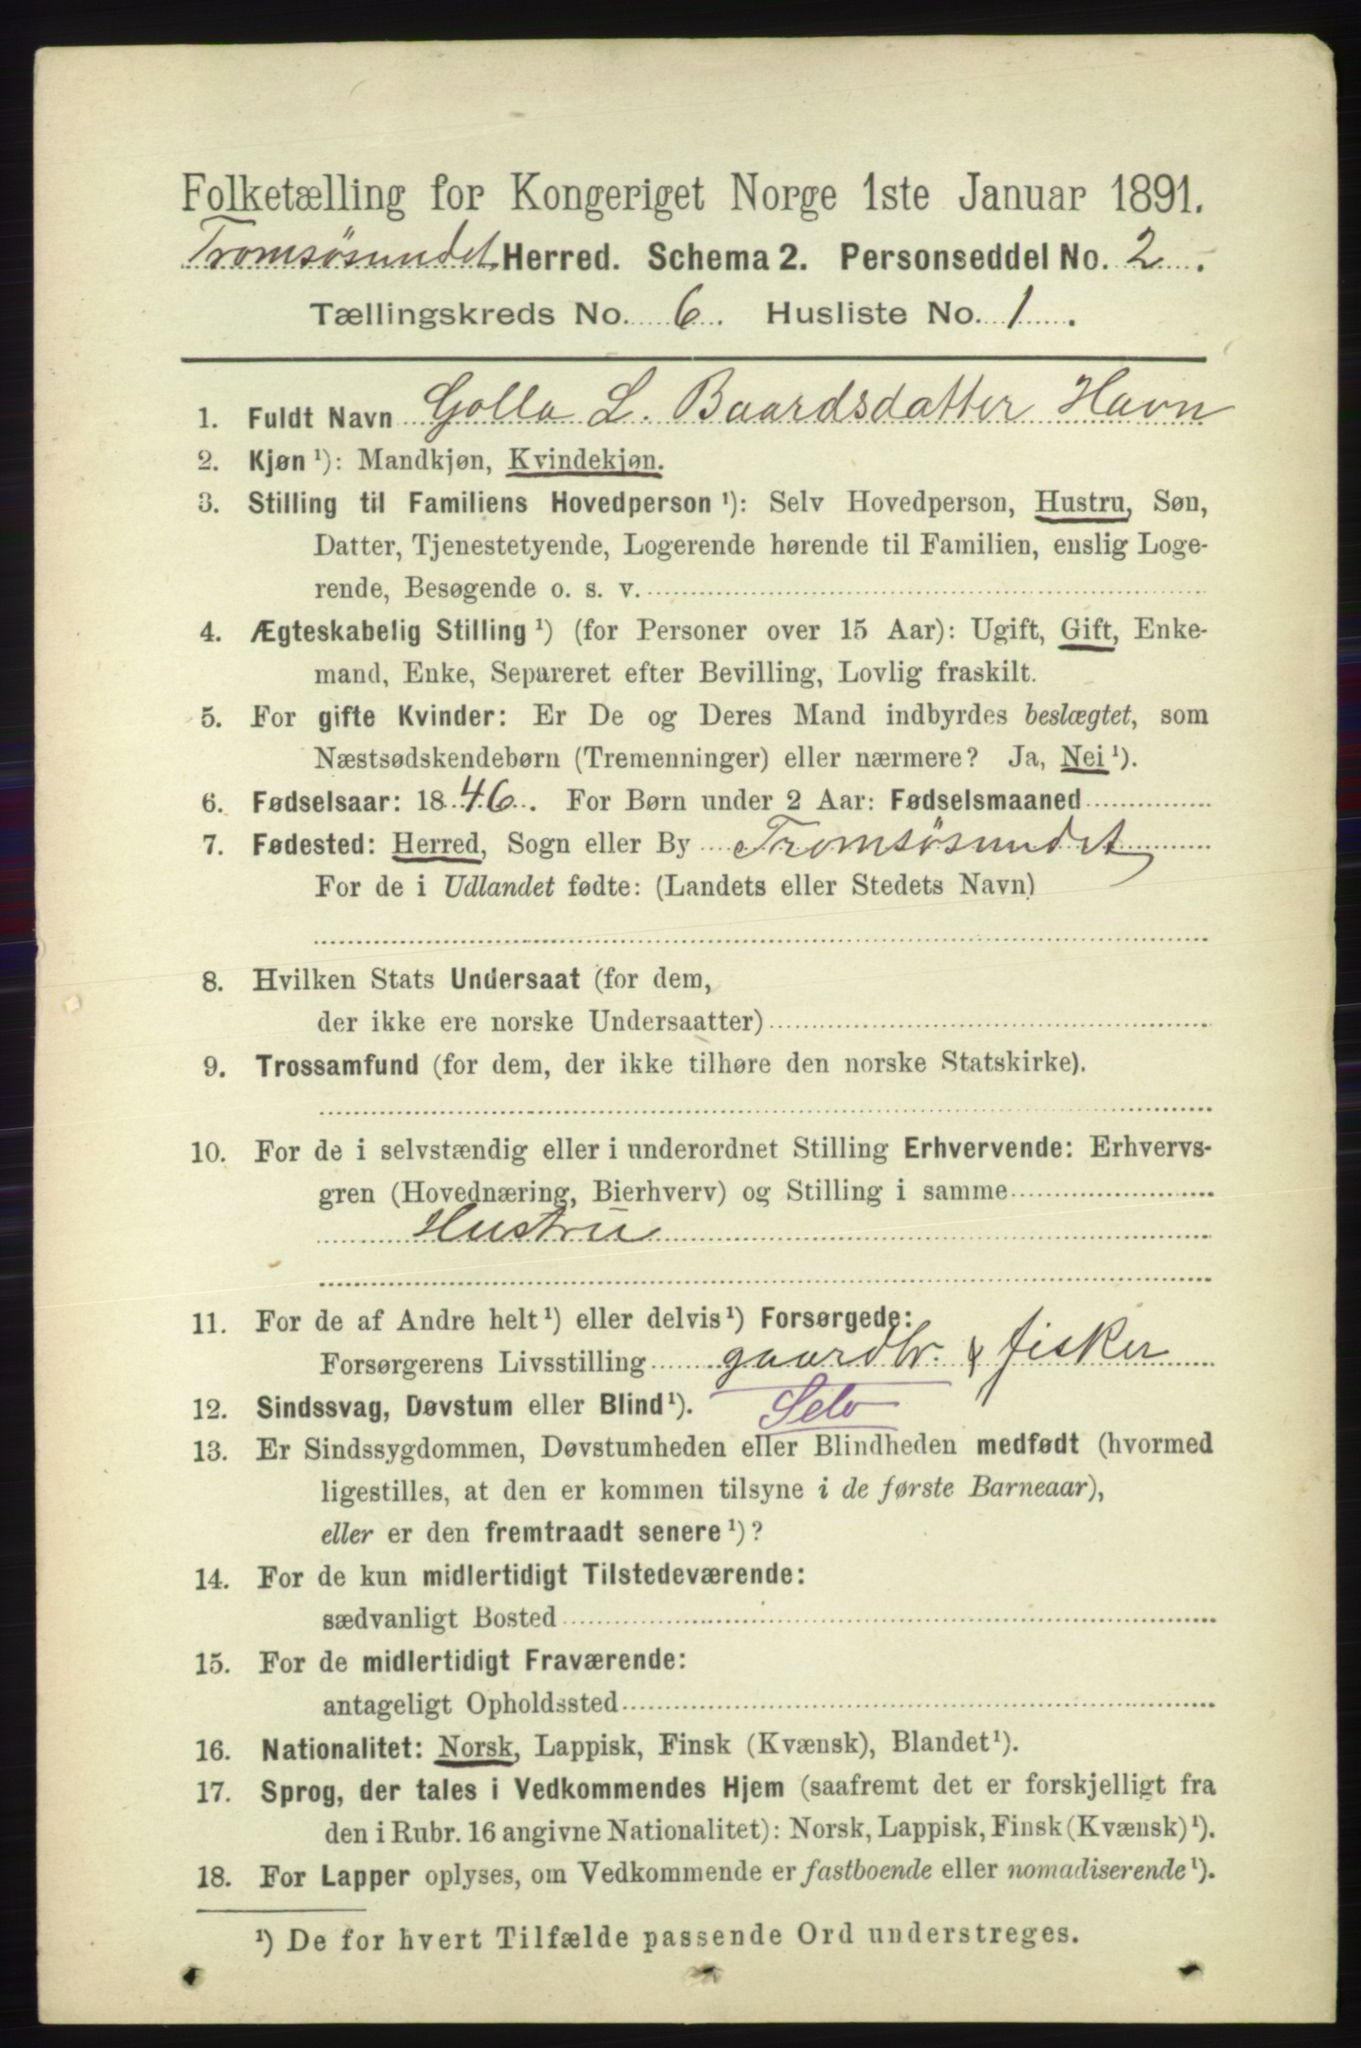 Folketælling for Kongeriget Norge 1ste Januar 1891.
Tromsøsundet Herred. Schema 2. Personseddel No. 2.
Tællingskreds No. 6. Husliste No. 1.
1. Fuldt Navn Golla L. Baardsdatter Havn
2. Kjøn ¹): Mandkjøn, Kvindekjøn.
3. Stilling til Familiens Hovedperson ¹): Selv Hovedperson, Hustru, Søn,
Datter, Tjenestetyende, Logerende hørende til Familien, enslig Loge-
rende, Besøgende o. s. v.
4. Ægteskabelig Stilling ¹) (for Personer over 15 Aar): Ugift, Gift, Enke-
mand, Enke, Separeret efter Bevilling, Lovlig fraskilt.
5. For gifte Kvinder: Er De og Deres Mand indbyrdes beslægtet, som
Næstsødskendebørn (Tremenninger) eller nærmere? Ja, Nei ¹).
6. Fødselsaar: 1846. For Børn under 2 Aar: Fødselsmaaned
7. Fødested: Herred, Sogn eller By Tromsøsundet
For de i Udlandet fødte: (Landets eller Stedets Navn)
8. Hvilken Stats Undersaat (for dem,
der ikke ere norske Undersaatter)
9. Trossamfund (for dem, der ikke tilhøre den norske Statskirke).
10. For de i selvstændig eller i underordnet Stilling Erhvervende: Erhvervs-
gren (Hovednæring, Bierhverv) og Stilling i samme
Hustru
11. For de af Andre helt ¹) eller delvis ¹) Forsørgede:
Forsørgerens Livsstilling gaardbr. & fisker
12. Sindssvag, Døvstum eller Blind ¹). Selv
13. Er Sindssygdommen, Døvstumheden eller Blindheden medfødt (hvormed
ligestilles, at den er kommen tilsyne i de første Barneaar),
eller er den fremtraadt senere ¹)?
14. For de kun midlertidigt Tilstedeværende:
sædvanligt Bosted
15. For de midlertidigt Fraværende:
antageligt Opholdssted
16. Nationalitet: Norsk, Lappisk, Finsk (Kvænsk), Blandet ¹).
17. Sprog, der tales i Vedkommendes Hjem (saafremt det er forskjelligt fra
den i Rubr. 16 angivne Nationalitet): Norsk, Lappisk, Finsk (Kvænsk) ¹).
18. For Lapper oplyses, om Vedkommende er fastboende eller nomadiserende ¹).
¹) De for hvert Tilfælde passende Ord understreges.